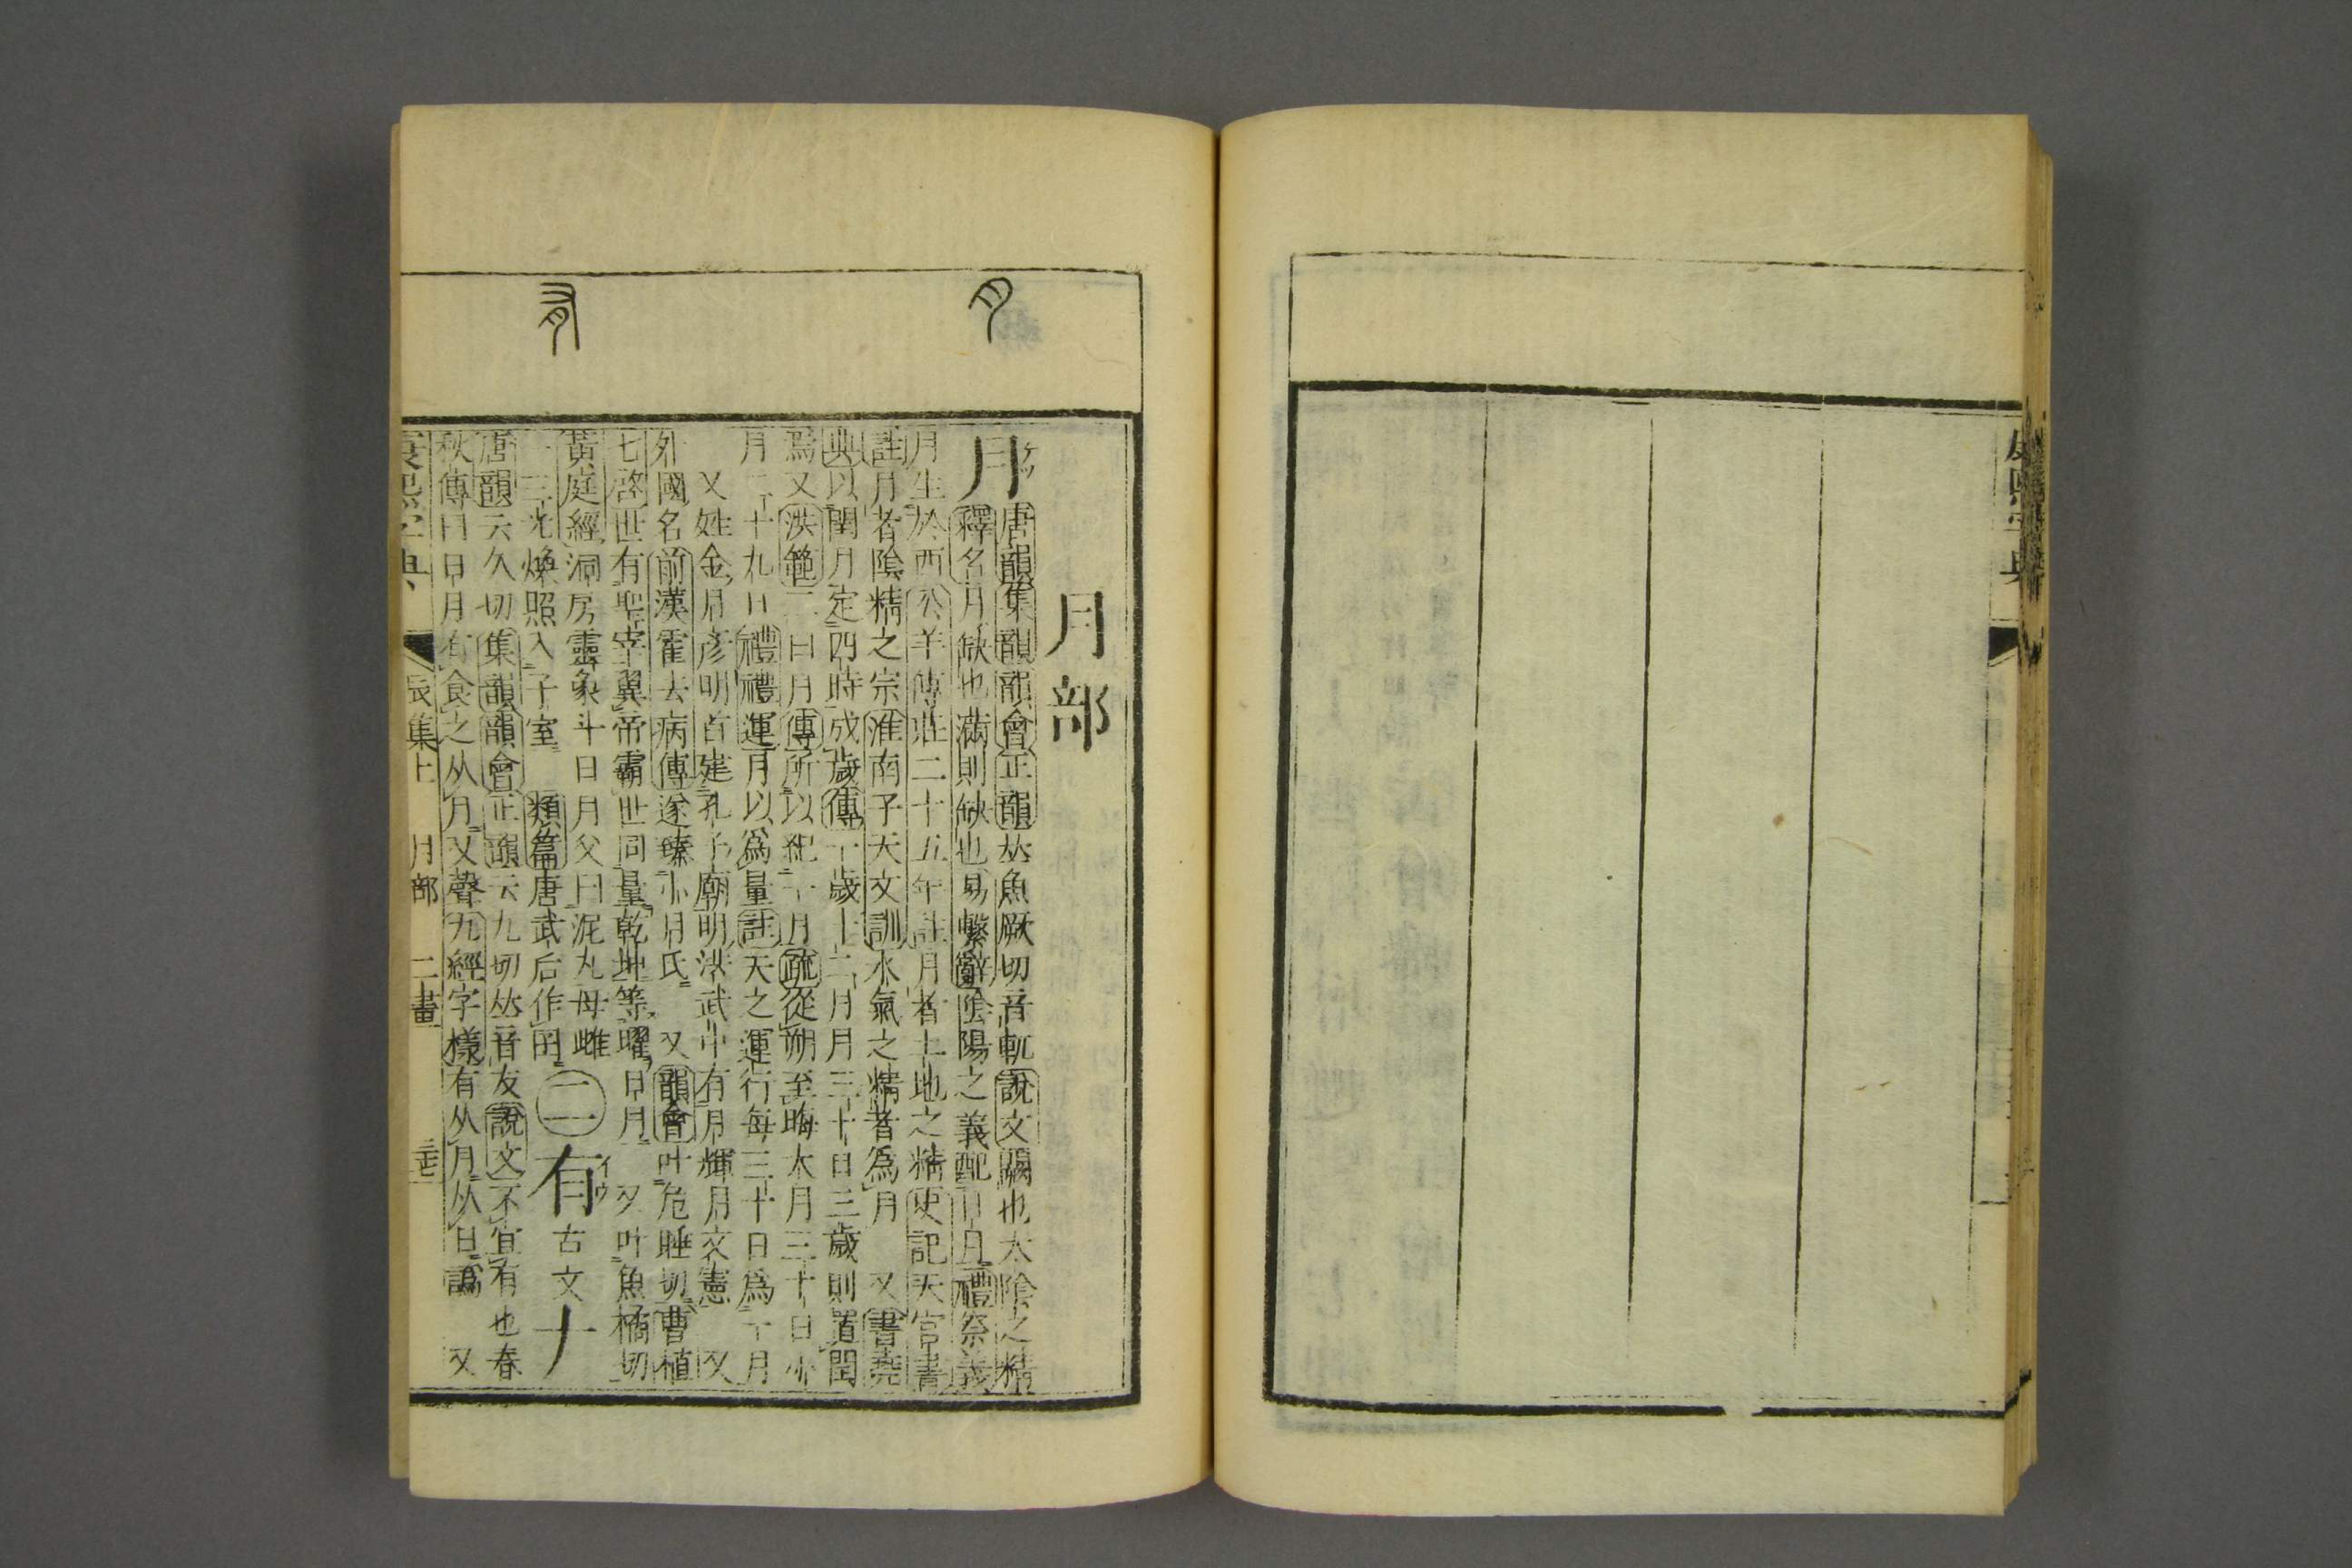 康熙字典
月部
月
ゲツ
唐韻集韻韻會正韻𠀤魚厥切音軏說文闕也太陰之精
釋名月缺也滿則缺也易繫辭陰陽之義配日月禮祭義
月生於西公羊傳莊二十五年註月者土地之精史記天官書
註月者陰精之宗淮南子天文訓水氣之精者爲月　又書堯
典以閏月定四時成歲傳一歲十二月月三十日三歲則置閏
焉又洪範二曰月傳所以紀一月疏從朔至晦大月三十日小
月二十九日禮禮運月以爲量註天之運行每三十日爲一月
又姓金月彥明首建孔子廟明洪武中有月輝月文憲　又
外國名前漢霍去病傳遂臻小月氏　又韻會叶危睡切曹植
七啓世有聖宰翼帝霸世同量乾坤等曜日月　又叶魚橘切
黃庭經洞房靈象斗日月父曰泥丸母雌
一三光煥照入子室　類篇唐武后作囝
二
有
イウ
古文
𠂇
唐韻云久切集韻韻會正韻云九切𠀤音友說文不宜有也春
秋傳曰日月有食之从月又聲九經字樣有从月从日譌　又
康熙字典
辰集上
月部
二畫
三七